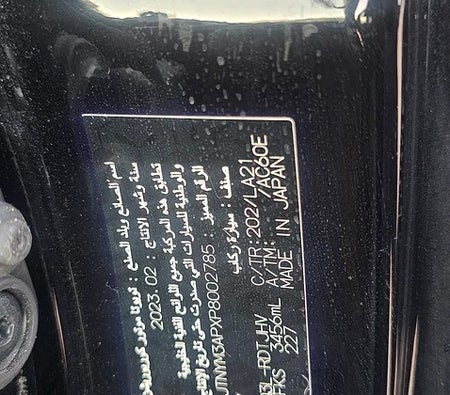 اسم الصانع وبلد الصنع : تويوتا موتور كوربوريشن
سنة وشهر الانتاج : 02 2023
تطابق هذه المركبة جميع اللوائح الفنية الخليجية
والوطنية للسيارات التي صدرت حتى تاريخ الإنتاج
الرقم المميز : JTNYM3APXP8002785
صنف : سيارة ركاب
C/TR: 202/LA21
A/TM: /AC60E
MADE IN JAPAN
RDTJHV
3456mL
FKS 227